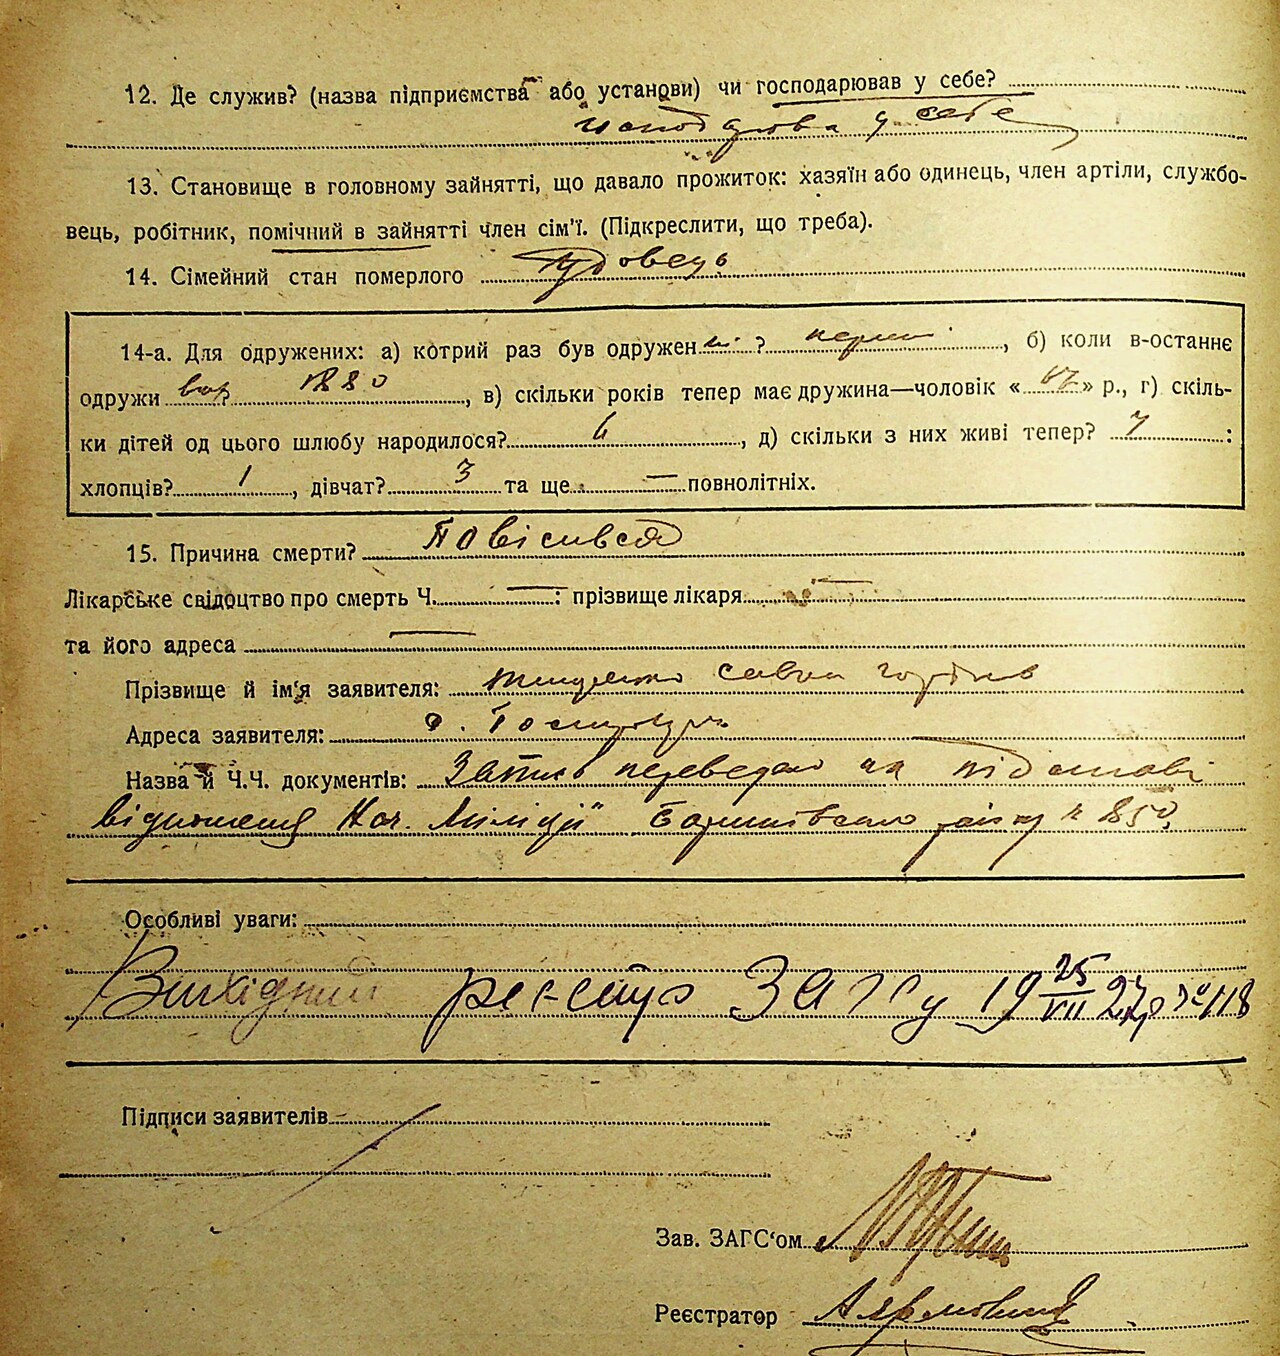 12. Де служив? (назва підприємства або установи) чи господарював у себе?
у себе
13. Становище в головному зайнятті, що давало прожиток: хазяїн або одинець, член артіли, службо-
вець, робітник, помічний в зайнятті член сім'ї. (Підкреслити, що треба).
14. Сімейний стан померлого удовець
14-а. Для одружених: а) котрий раз був одружен ? перший, б) коли в-останнє
одружи всь 1880, в) скільки років тепер має дружина—чоловік « » р., г) скіль-
ки дітей од цього шлюбу народилося? д) скільки з них живі тепер? :
хлопців? 1, дівчат? 3 та ще — повнолітніх.
15. Причина смерти? Повісився
Лікарське свідоцтво про смерть Ч. — : прізвище лікаря —
та його адреса —
Прізвище й ім'я заявителя: Сава
Адреса заявителя: с.
Назва й Ч.Ч. документів: Запис переведено на підставі
відношення Нач. Міліції району № 850
Особливі уваги:
Вихідний реєстр ЗАГСу 19 25/VII 27 р № 118
Підписи заявителів
Зав. ЗАГС'ом
Реєстратор